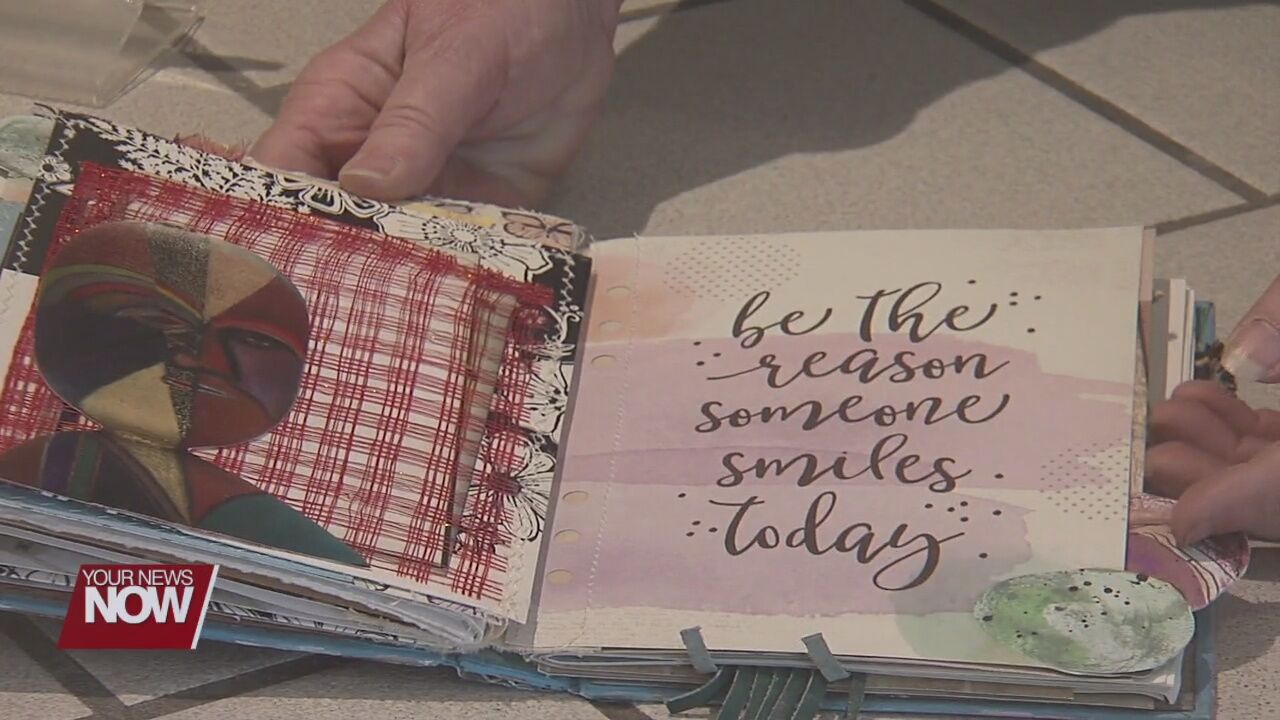 be the
reason
someone
smiles
today
YOUR NEWS
NOW